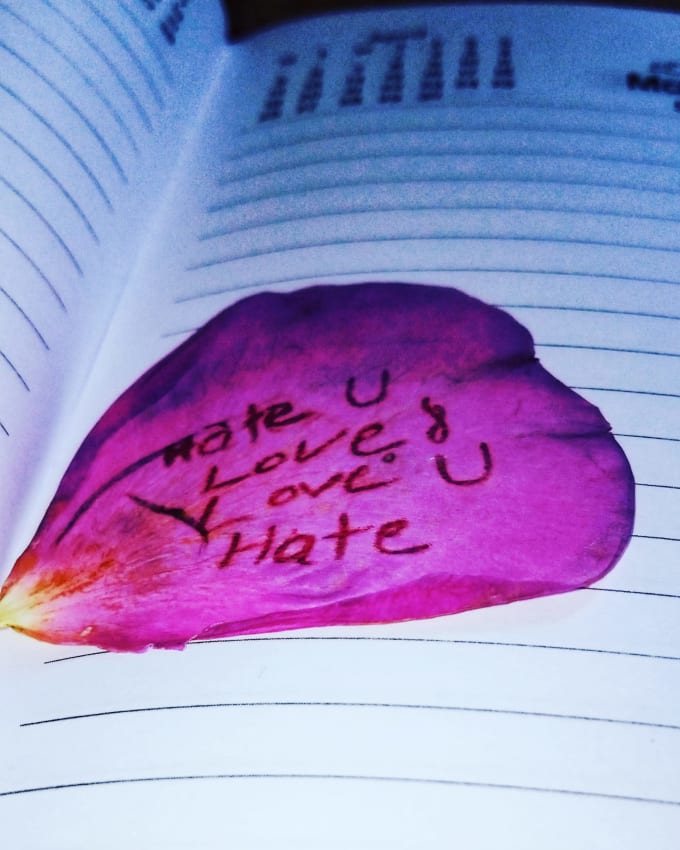 Hate U
Love &
Love U
Hate